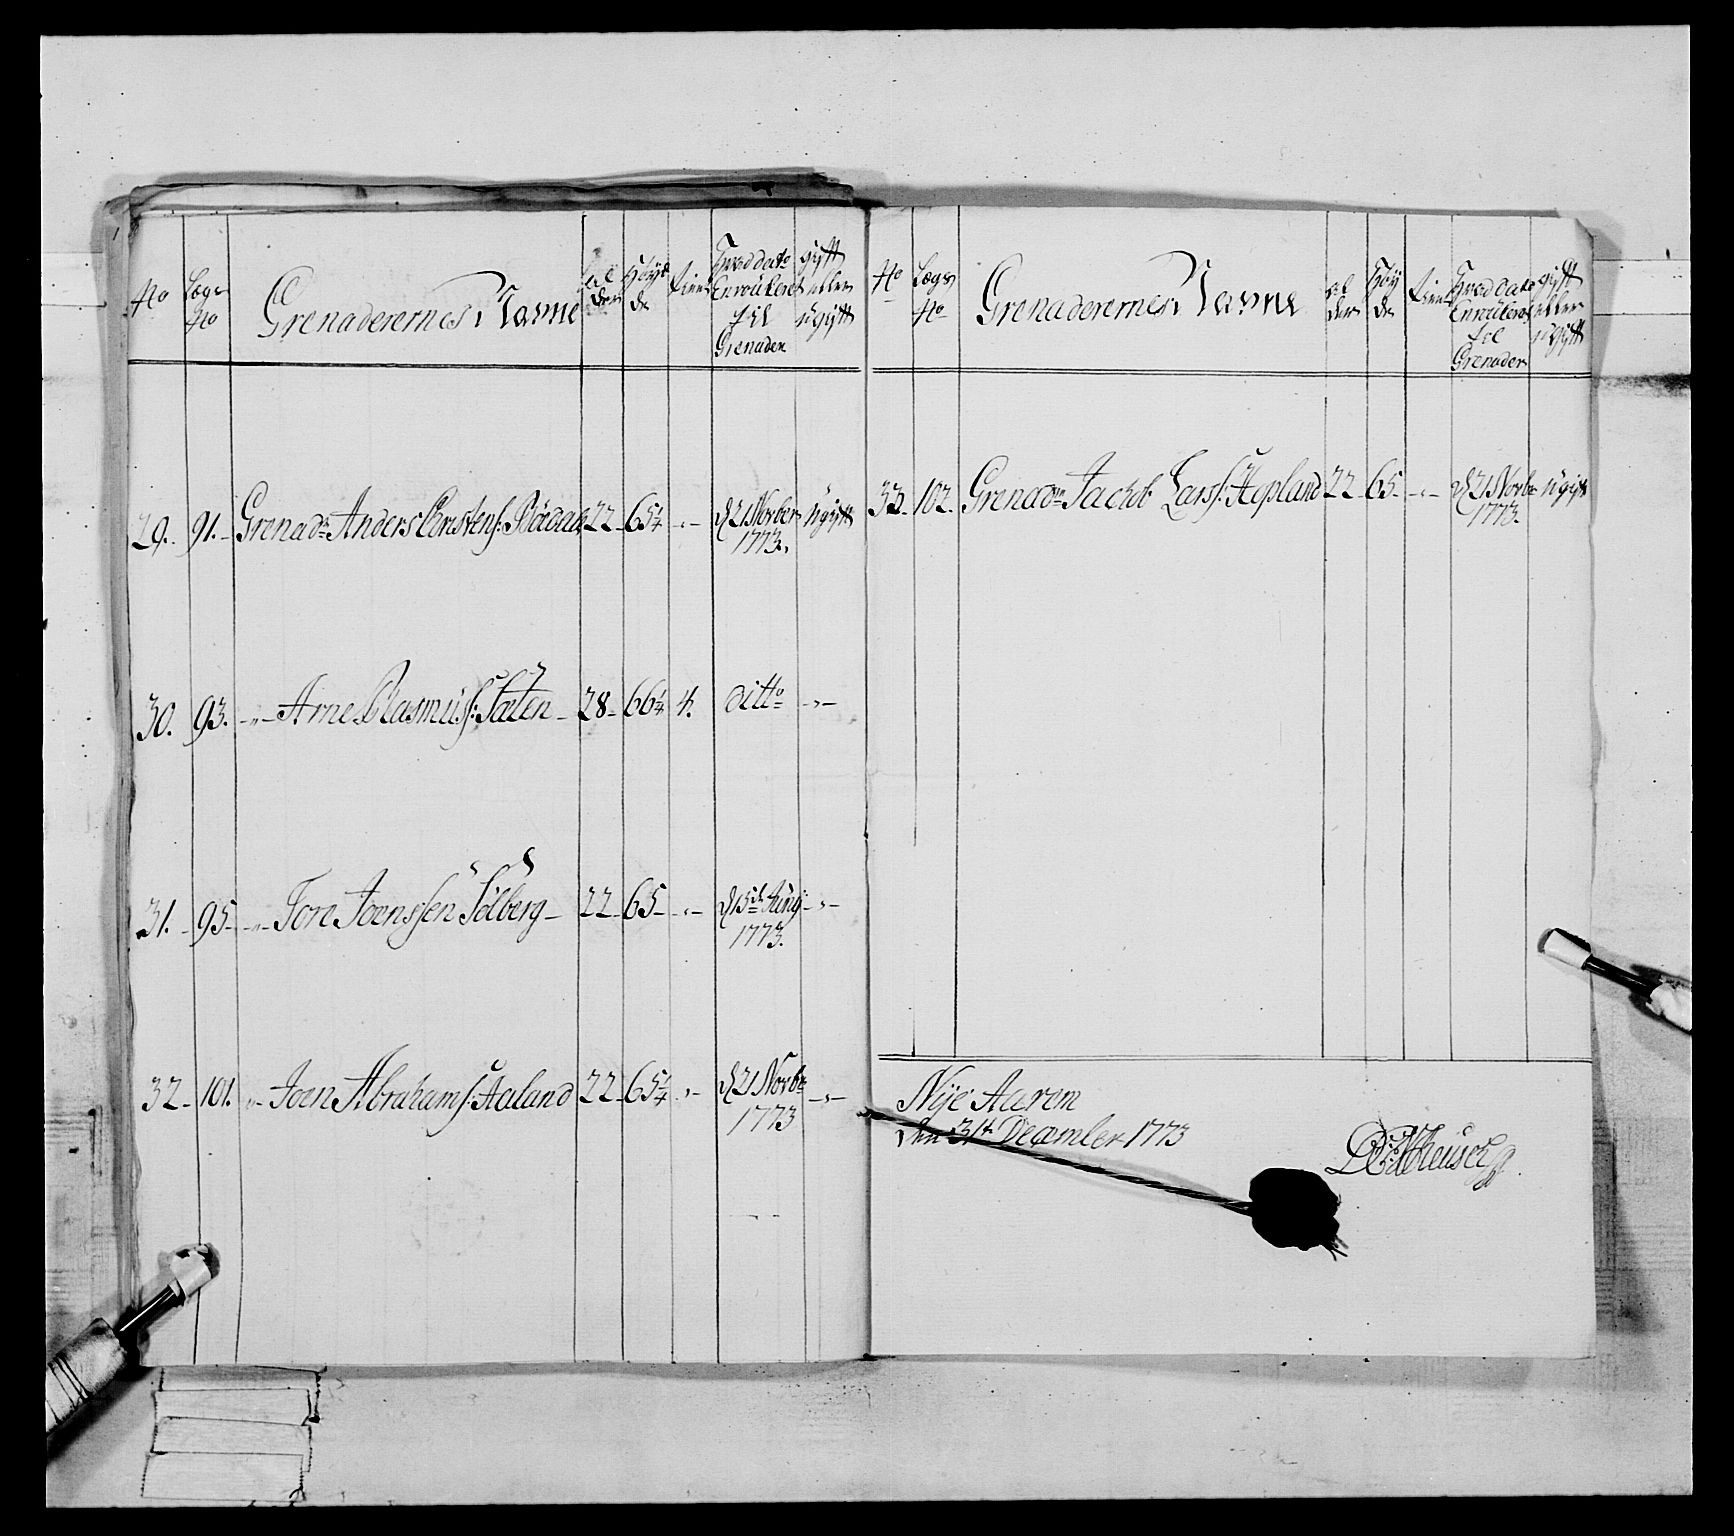 No Lægs No Grenaderernes Navne al der Høy de Tient Hvad dato Enroulert til Grenader gift eller ugift
29. 91. Grenadr Anders Christens: 22 65¼ -"- d 21 Novber 1773. ugift
30. 93. -"- Arne Rasmus: Sæten 28 66¼ 4. ditto -"-
31. 95 -"- Tore Joenssen Solberg 22 65 -"- d 15de Juny 1773. -"-
32 101. -"- Joen Abrahams: Aaland 22 65¼ -"- d 21 Novbr 1773 -"-
No Lægs No Grenaderernes Navne al der Høy de Tient Hvad dato Enroulert til Grenader gift eller ugift
33. 102. Grenadr Jachob Larss: Aspland 22 65 -"- d 21 Novbr 1773. ugift
Nÿe Aarem
den 31te December 1773